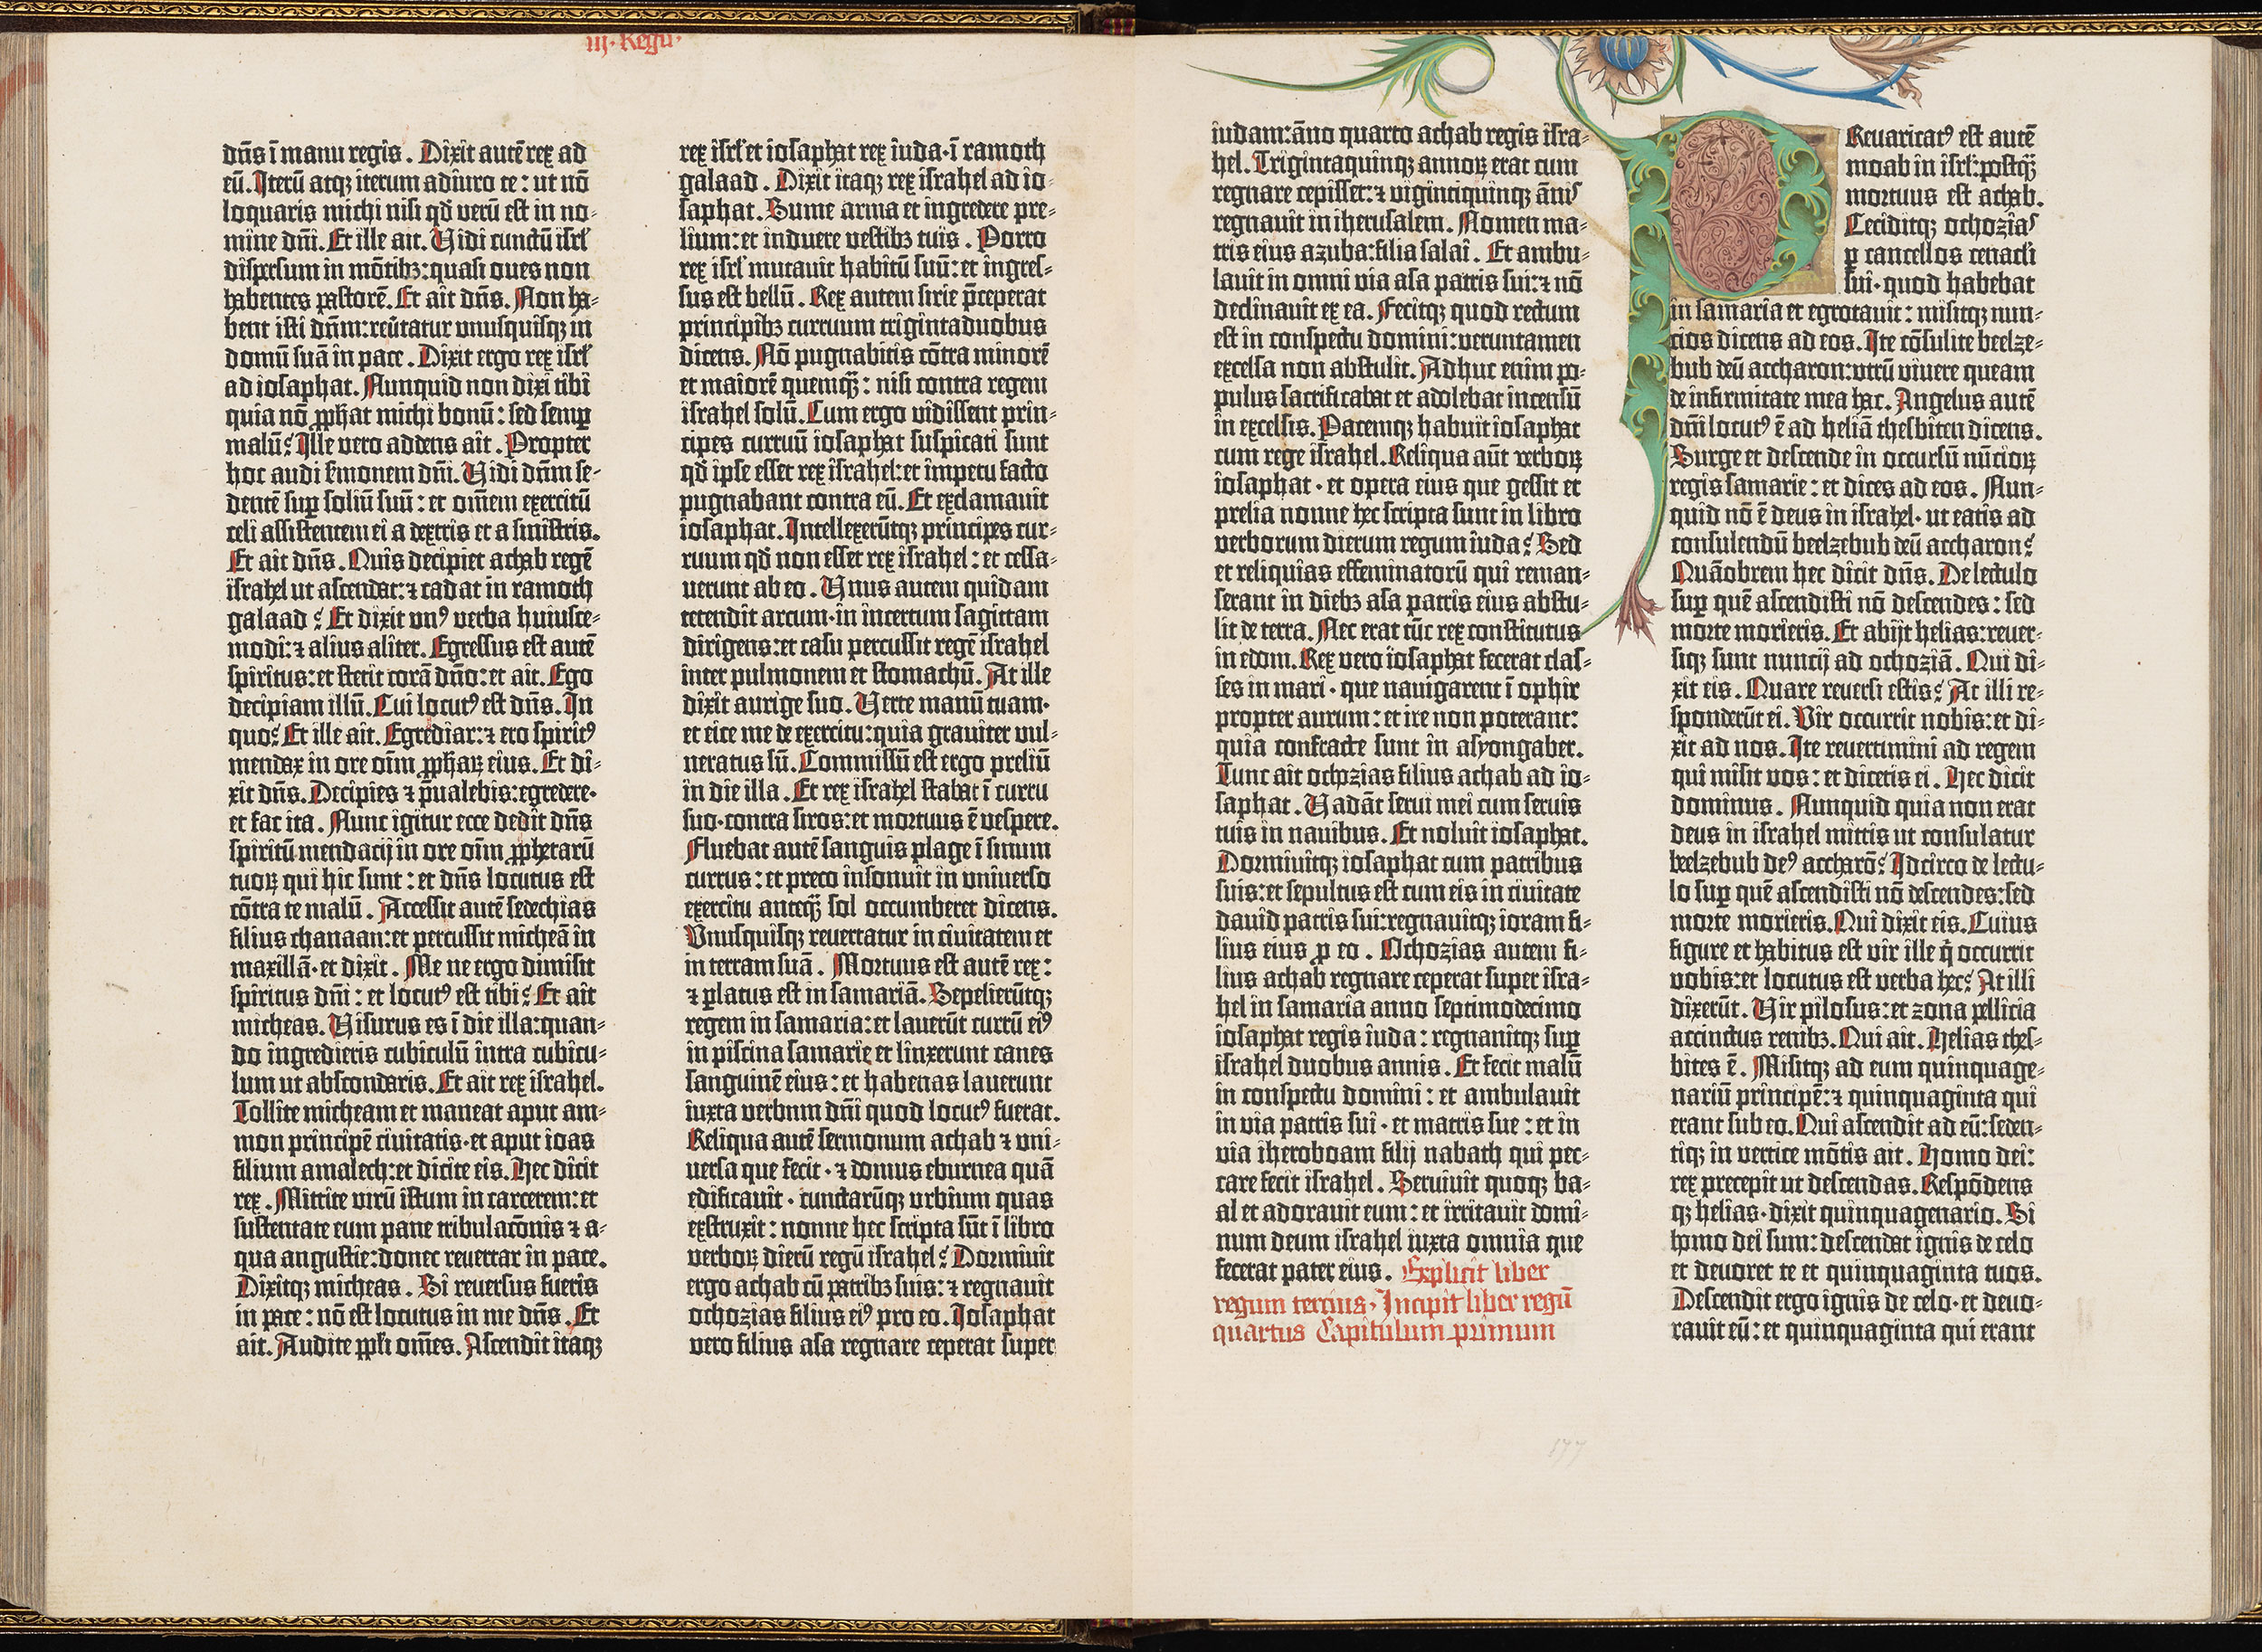 iij. Regū.
dn̄s ī manu regis. Dixit autē rex ad
eū. Iterū atq; iterum adiuro te: ut nō
loquaris michi nisi qd̄ verū est in no-
mine dn̄i. Et ille ait. Vidi cunctū isrl̄
dispersum in mōtib;: quasi oues non
habentes pastorē. Et ait dn̄s. Non ha-
bent isti dn̄m: reūtatur vnusquisq; in
domū suā in pace. Dixit ergo rex isrl̄
ad iosaphat. Nunquid non dixi tibi
quia nō ꝓph̄at michi bonū: sed semꝑ
malū? Ille vero addens ait. Propter
hoc audi s̄monem dn̄i. Vidi dn̄m se-
dentē suꝑ soliū suū: et om̄em exercitū
celi assistentem ei a dextris et a sinistris.
Et ait dn̄s. Quis decipiet achab regē
israhel ut ascendat: ⁊ cadat in ramoth
galaad? Et dixit vnꝰ verba huiusce-
modi: ⁊ alius aliter. Egressus est autē
spiritus: et stetit corā dn̄o: et ait. Ego
decipiam illū. Cui locutꝰ est dn̄s. In
quo? Et ille ait. Egrediar: ⁊ ero spiritꝰ
mendax in ore oīm ꝓph̄aꝝ eius. Et di-
xit dn̄s. Decipies ⁊ p̄ualebis: egredere.
et fac ita. Nunc igitur ecce dedit dn̄s
spiritū mendacij in ore oīm ꝓphetarū
tuoꝝ qui hic sunt: et dn̄s locutus est
cōtra te malū. Accessit autē sedechias
filius chanaan: et percussit micheā in
maxillā. et dixit. Me ne ergo dimisit
spiritus dn̄i: et locutꝰ est tibi? Et ait
micheas. Visurus es ī die illa: quan-
do ingredieris cubiculū intra cubicu-
lum ut abscondaris. Et ait rex israhel.
Tollite micheam et maneat aput am-
mon principē ciuitatis. et aput ioas
filium amalech: et dicite eis. Hec dicit
rex. Mittite virū istum in carcerem: et
sustentate eum pane tribulacōnis ⁊ a-
qua angustie: donec reuertar in pace.
Dixitq; micheas. Si reuersus fueris
in pace: nō est locutus in me dn̄s. Et
ait. Audite ppl̄i om̄es. Ascendit itaq;
rex isrl̄ et iosaphat rex iuda. ī ramoth
galaad. Dixit itaq; rex israhel ad io-
saphat. Sume arma et ingredere pre-
lium: et induere vestib; tuis. Porro
rex isrl̄ mutauit habitū suū: et ingres-
sus est bellū. Rex autem sirie p̄ceperat
principib; curruum trigintaduobus
dicens. Nō pugnabitis cōtra minorē
et maiorē quemq̄; : nisi contra regem
israhel solū. Cum ergo vidissent prin-
cipes curruū iosaphat suspicati sunt
qd̄ ipse esset rex israhel: et impetu facto
pugnabant contra eū. Et exclamauit
iosaphat. Intellexerūtq; principes cur-
ruum qd̄ non esset rex israhel: et cessa-
uerunt ab eo. Vnus autem quidam
tetendit arcum. in incertum sagittam
dirigens: et casu percussit regē israhel
inter pulmonem et stomachū. At ille
dixit aurige suo. Verte manū tuam.
et eice me de exercitu: quia grauiter vul-
neratus sū. Commissū est ergo preliū
in die illa. Et rex israhel stabat ī curru
suo. contra siros: et mortuus ē vespere.
Fluebat autē sanguis plage ī sinum
currus: et preco insonuit in vniuerso
exercitu anteq̄; sol occumberet dicens.
Vnusquisq; reuertatur in ciuitatem et
in terram suā. Mortuus est autē rex:
⁊ ꝑlatus est in samariā. Sepelierūtq;
regem in samaria: et lauerūt currū eiꝰ
in piscina samarie et linxerunt canes
sanguinē eius: et habenas lauerunt
iuxta verbum dn̄i quod locutꝰ fuerat.
Reliqua autē sermonum achab ⁊ vni-
uersa que fecit. ⁊ domus eburnea quā
edificauit. cunctarūq; vrbium quas
exstruxit: nonne hec scripta sūt ī libro
verboꝝ dierū regū israhel? Dormiuit
ergo achab cū patrib; suis: ⁊ regnauit
ochozias filius eiꝰ pro eo. Iosaphat
vero filius asa regnare ceperat super
iudam: āno quarto achab regis isra-
hel. Trigintaquinq; annoꝝ erat cum
regnare cepisset: ⁊ vigintiquinq; ānis
regnauit in iherusalem. Nomen ma-
tris eius azuba: filia salai. Et ambu-
lauit in omni via asa patris sui: ⁊ nō
declinauit ex ea. Fecitq; quod rectum
est in conspectu domini: veruntamen
excelsa non abstulit. Adhuc enim po-
pulus sacrificabat et adolebat incensū
in excelsis. Pacemq; habuit iosaphat
cum rege israhel. Reliqua aūt verboꝝ
iosaphat. et opera eius que gessit et
prelia nonne hec scripta sunt in libro
verborum dierum regum iuda? Sed
et reliquias effeminatorū qui reman-
serant in dieb; asa patris eius abstu-
lit de terra. Nec erat tūc rex constitutus
in edom. Rex vero iosaphat fecerat clas-
ses in mari. que nauigarent ī ophir
propter aurum: et ire non poterant:
quia confracte sunt in asyongaber.
Tunc ait ochozias filius achab ad io-
saphat. Vadāt serui mei cum seruis
tuis in nauibus. Et noluit iosaphat.
Dormiuitq; iosaphat cum patribus
suis: et sepultus est cum eis in ciuitate
dauid patris sui: regnauitq; ioram fi-
lius eius ꝓ eo. Ochozias autem fi-
lius achab regnare ceperat super isra-
hel in samaria anno septimodecimo
iosaphat regis iuda: regnauitq; suꝑ
israhel duobus annis. Et fecit malū
in conspectu domini: et ambulauit
in via patris sui. et matris sue: et in
via iheroboam filij nabath qui pec-
care fecit israhel. Seruiuit quoq; ba-
al et adorauit eum: et irritauit domi-
num deum israhel iuxta omnia que
fecerat pater eius. Explicit liber
regum tercius. Incipit liber regū
quartus Capitulum primum
PReuaricatꝰ est autē
moab in isrl̄: postq̄;
mortuus est achab.
Ceciditq; ochozias
ꝑ cancellos cenac̄li
sui. quod habebat
in samaria et egrotauit: misitq; nun-
cios dicens ad eos. Ite cōsulite beelze-
bub deū accharon: vtrū viuere queam
de infirmitate mea hac. Angelus autē
dn̄i locutꝰ ē ad heliā thesbiten dicens.
Surge et descende in occursū nūcioꝝ
regis samarie: et dices ad eos. Nun-
quid nō ē deus in israhel. ut eatis ad
consulendū beelzebub deū accharon?
Quāobrem hec dicit dn̄s. De lectulo
suꝑ quē ascendisti nō descendes: sed
morte morieris. Et abijt helias: reuer-
siq; sunt nuncij ad ochoziā. Qui di-
xit eis. Quare reuersi estis? At illi re-
sponderūt ei. Vir occurrit nobis: et di-
xit ad nos. Ite reuertimini ad regem
qui misit vos: et dicetis ei. Hec dicit
dominus. Nunquid quia non erat
deus in israhel mittis ut consulatur
beelzebub deꝰ accharō? Idcirco de lectu-
lo suꝑ quē ascendisti nō descendes: sed
morte morieris. Qui dixit eis. Cuius
figure et habitus est vir ille q̄ occurrit
vobis: et locutus est verba hec? At illi
dixerūt. Vir pilosus: et zona pellicia
accinctus renib;. Qui ait. Helias thes-
bites ē. Misitq; ad eum quinquage-
nariū principē: ⁊ quinquaginta qui
erant sub eo. Qui ascendit ad eū: seden-
tiq; in vertice mōtis ait. Homo dei:
rex precepit ut descendas. Respōdens
q; helias. dixit quinquagenario. Si
homo dei sum: descendat ignis de celo
et deuoret te et quinquaginta tuos.
Descendit ergo ignis de celo. et deuo-
rauit eū: et quinquaginta qui erant
177